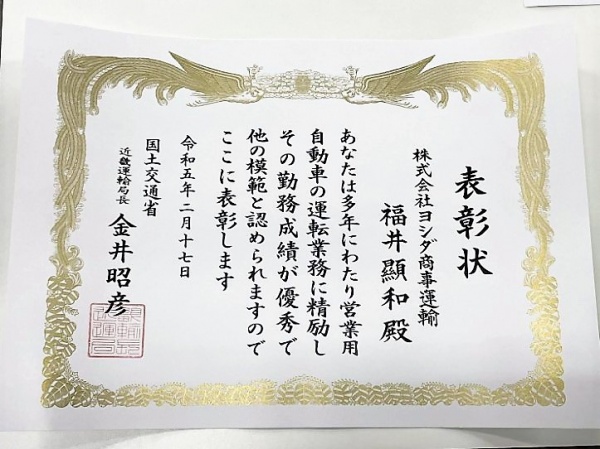 表彰状
株式会社ヨシダ商事運輸
福井顯和殿
あなたは多年にわたり営業用
自動車の運転業務に精励し
その勤務成績が優秀で
他の模範と認められますので
ここに表彰します
令和五年二月十七日
国土交通省
近畿運輸局長 金井昭彦